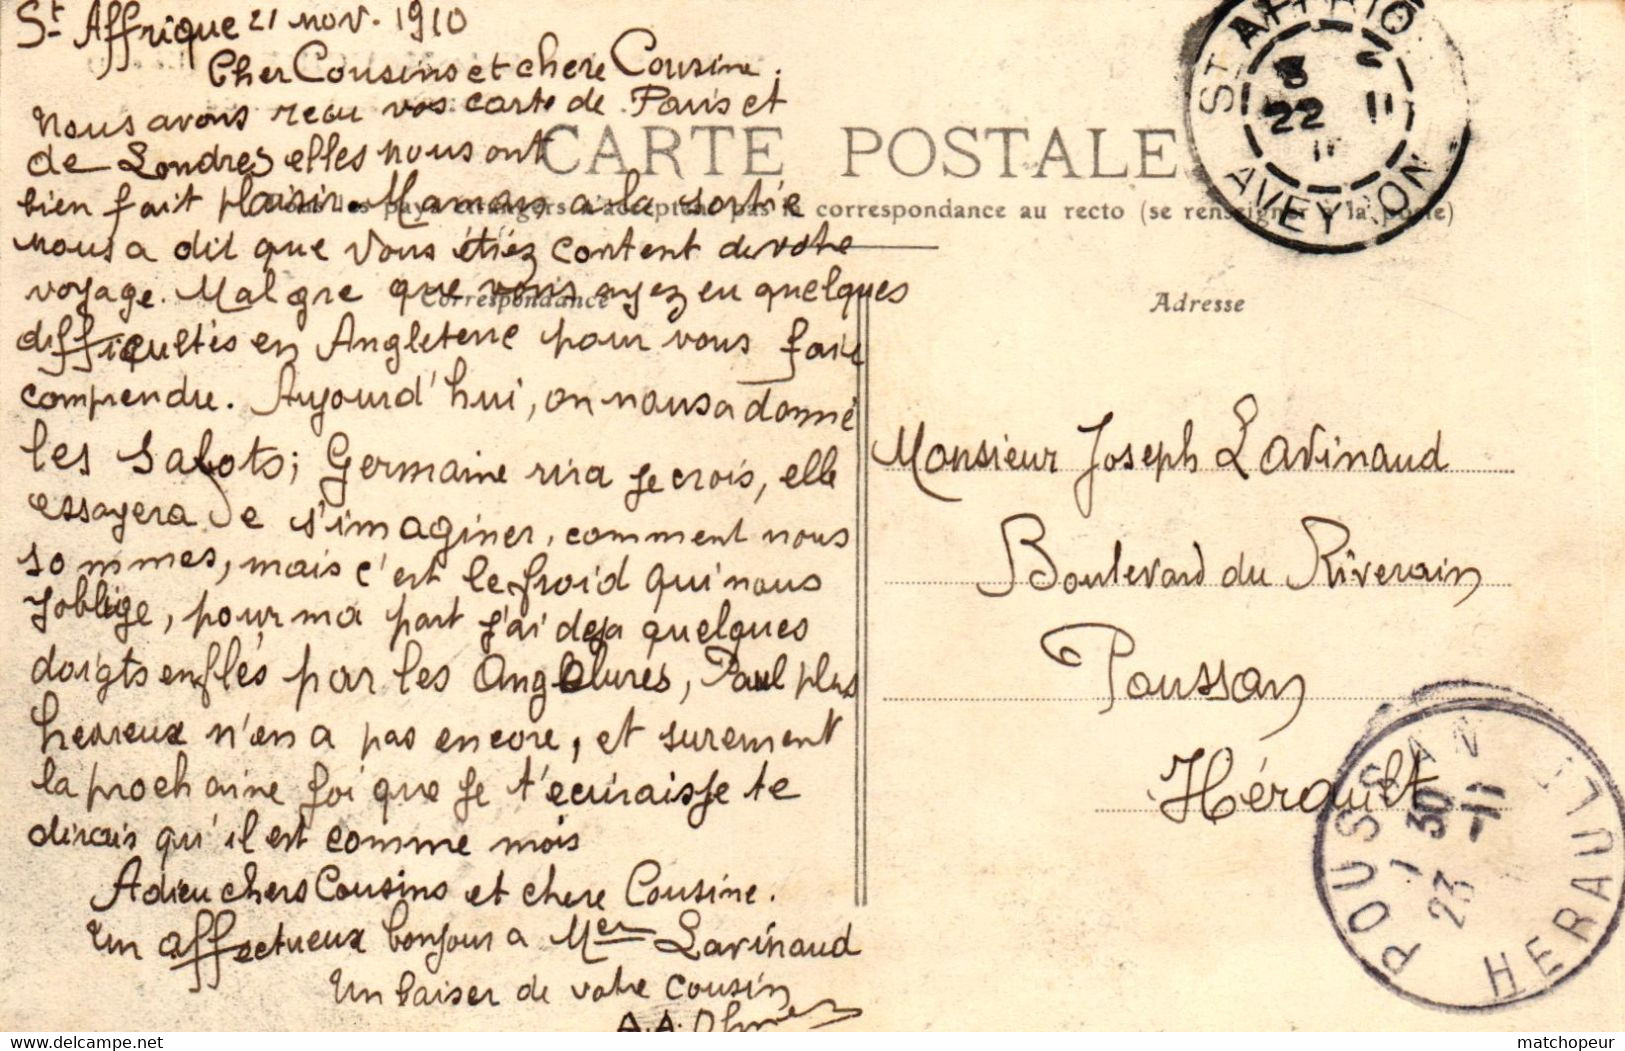 St Affrique 21 nov. 1910
Cher Cousins et chere Cousine.
Nous avons recu vos carte de Paris et
de Londres elles nous ont
bien fait plaisir. Maman a la sortie
nous a dit que vous étiez content de votre
voyage. Malgre que vous ayez eu quelques
difficultés en Angleterre pour vous faire
comprendre. Aujourd'hui, on nous a donné
les sabots; Germaine rira je crois, elle
essayera de s'imaginer, comment nous
sommes, mais c'est le froid qui nous
y oblige, pour ma part j'ai deja quelques
doigts enflés par les Angelures, Paul plus
hereux n'en a pas encore, et surement
la prochaine foi que je t'ecriraisje te
dirais qu'il est comme mois
Adieu chers Cousins et chere Cousine.
Un affectueux bonjour a Mer Lavinaud
Un baiser de votre cousin
A.A.
CARTE POSTALE
pas la correspondance au recto (se renseigner à la poste)
Correspondance
Adresse
Monsieur Joseph Lavinaud
Boulevard du Riverain
Poussan
Hérault
ST AFFRIQ
22 11
AVEYRON
POUSSAN
7 30
23 -11
HERAULT
delcampe.net
matchopeur